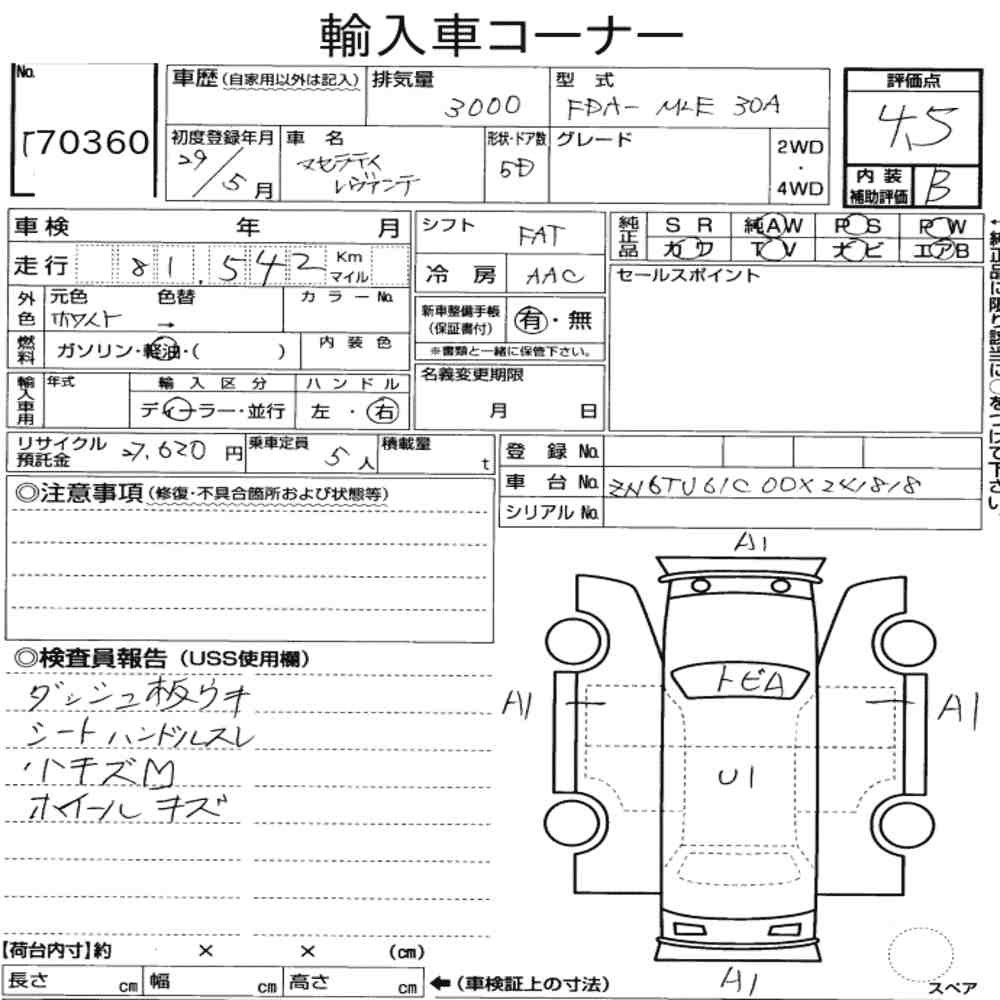 輸入車コーナー
No.
70360
車歴(自家用以外は記入) 排気量 3000 型式 FDA-MLE30A
評価点 4.5
初度登録年月 29/5月
車名 マセラティ レヴァンテ
形状・ドア数 5D
グレード
2WD・4WD
内装補助評価 B
車検 年 月
シフト FAT
純正品 SR 純AW PS PW
カワ TV ナビ エアB
走行 81,542 Km マイル
冷房 AAC
セールスポイント
外色 元色 ホワイト 色替 → カラーNo.
新車整備手帳(保証書付) 有・無
※書類と一緒に保管下さい。
燃料 ガソリン・軽油・( ) 内装色
輸入車用 年式 輸入区分 ディーラー・並行 ハンドル 左・右
名義変更期限 月 日
リサイクル預託金 27,620円 乗車定員 5人 積載量 t
登録No.
車台No. ZN6TU61C00X241818
シリアルNo.
←純正品に限り該当に○をつけて下さい。
◎注意事項(修復・不具合箇所および状態等)
◎検査員報告(USS使用欄)
ダッシュ板ウキ
シート ハンドルスレ
小キズM
ホイール キズ
A1
トビA
A1
A1
U1
A1
スペア
【荷台内寸】約 × × (cm)
長さ cm 幅 cm 高さ cm ←(車検証上の寸法)